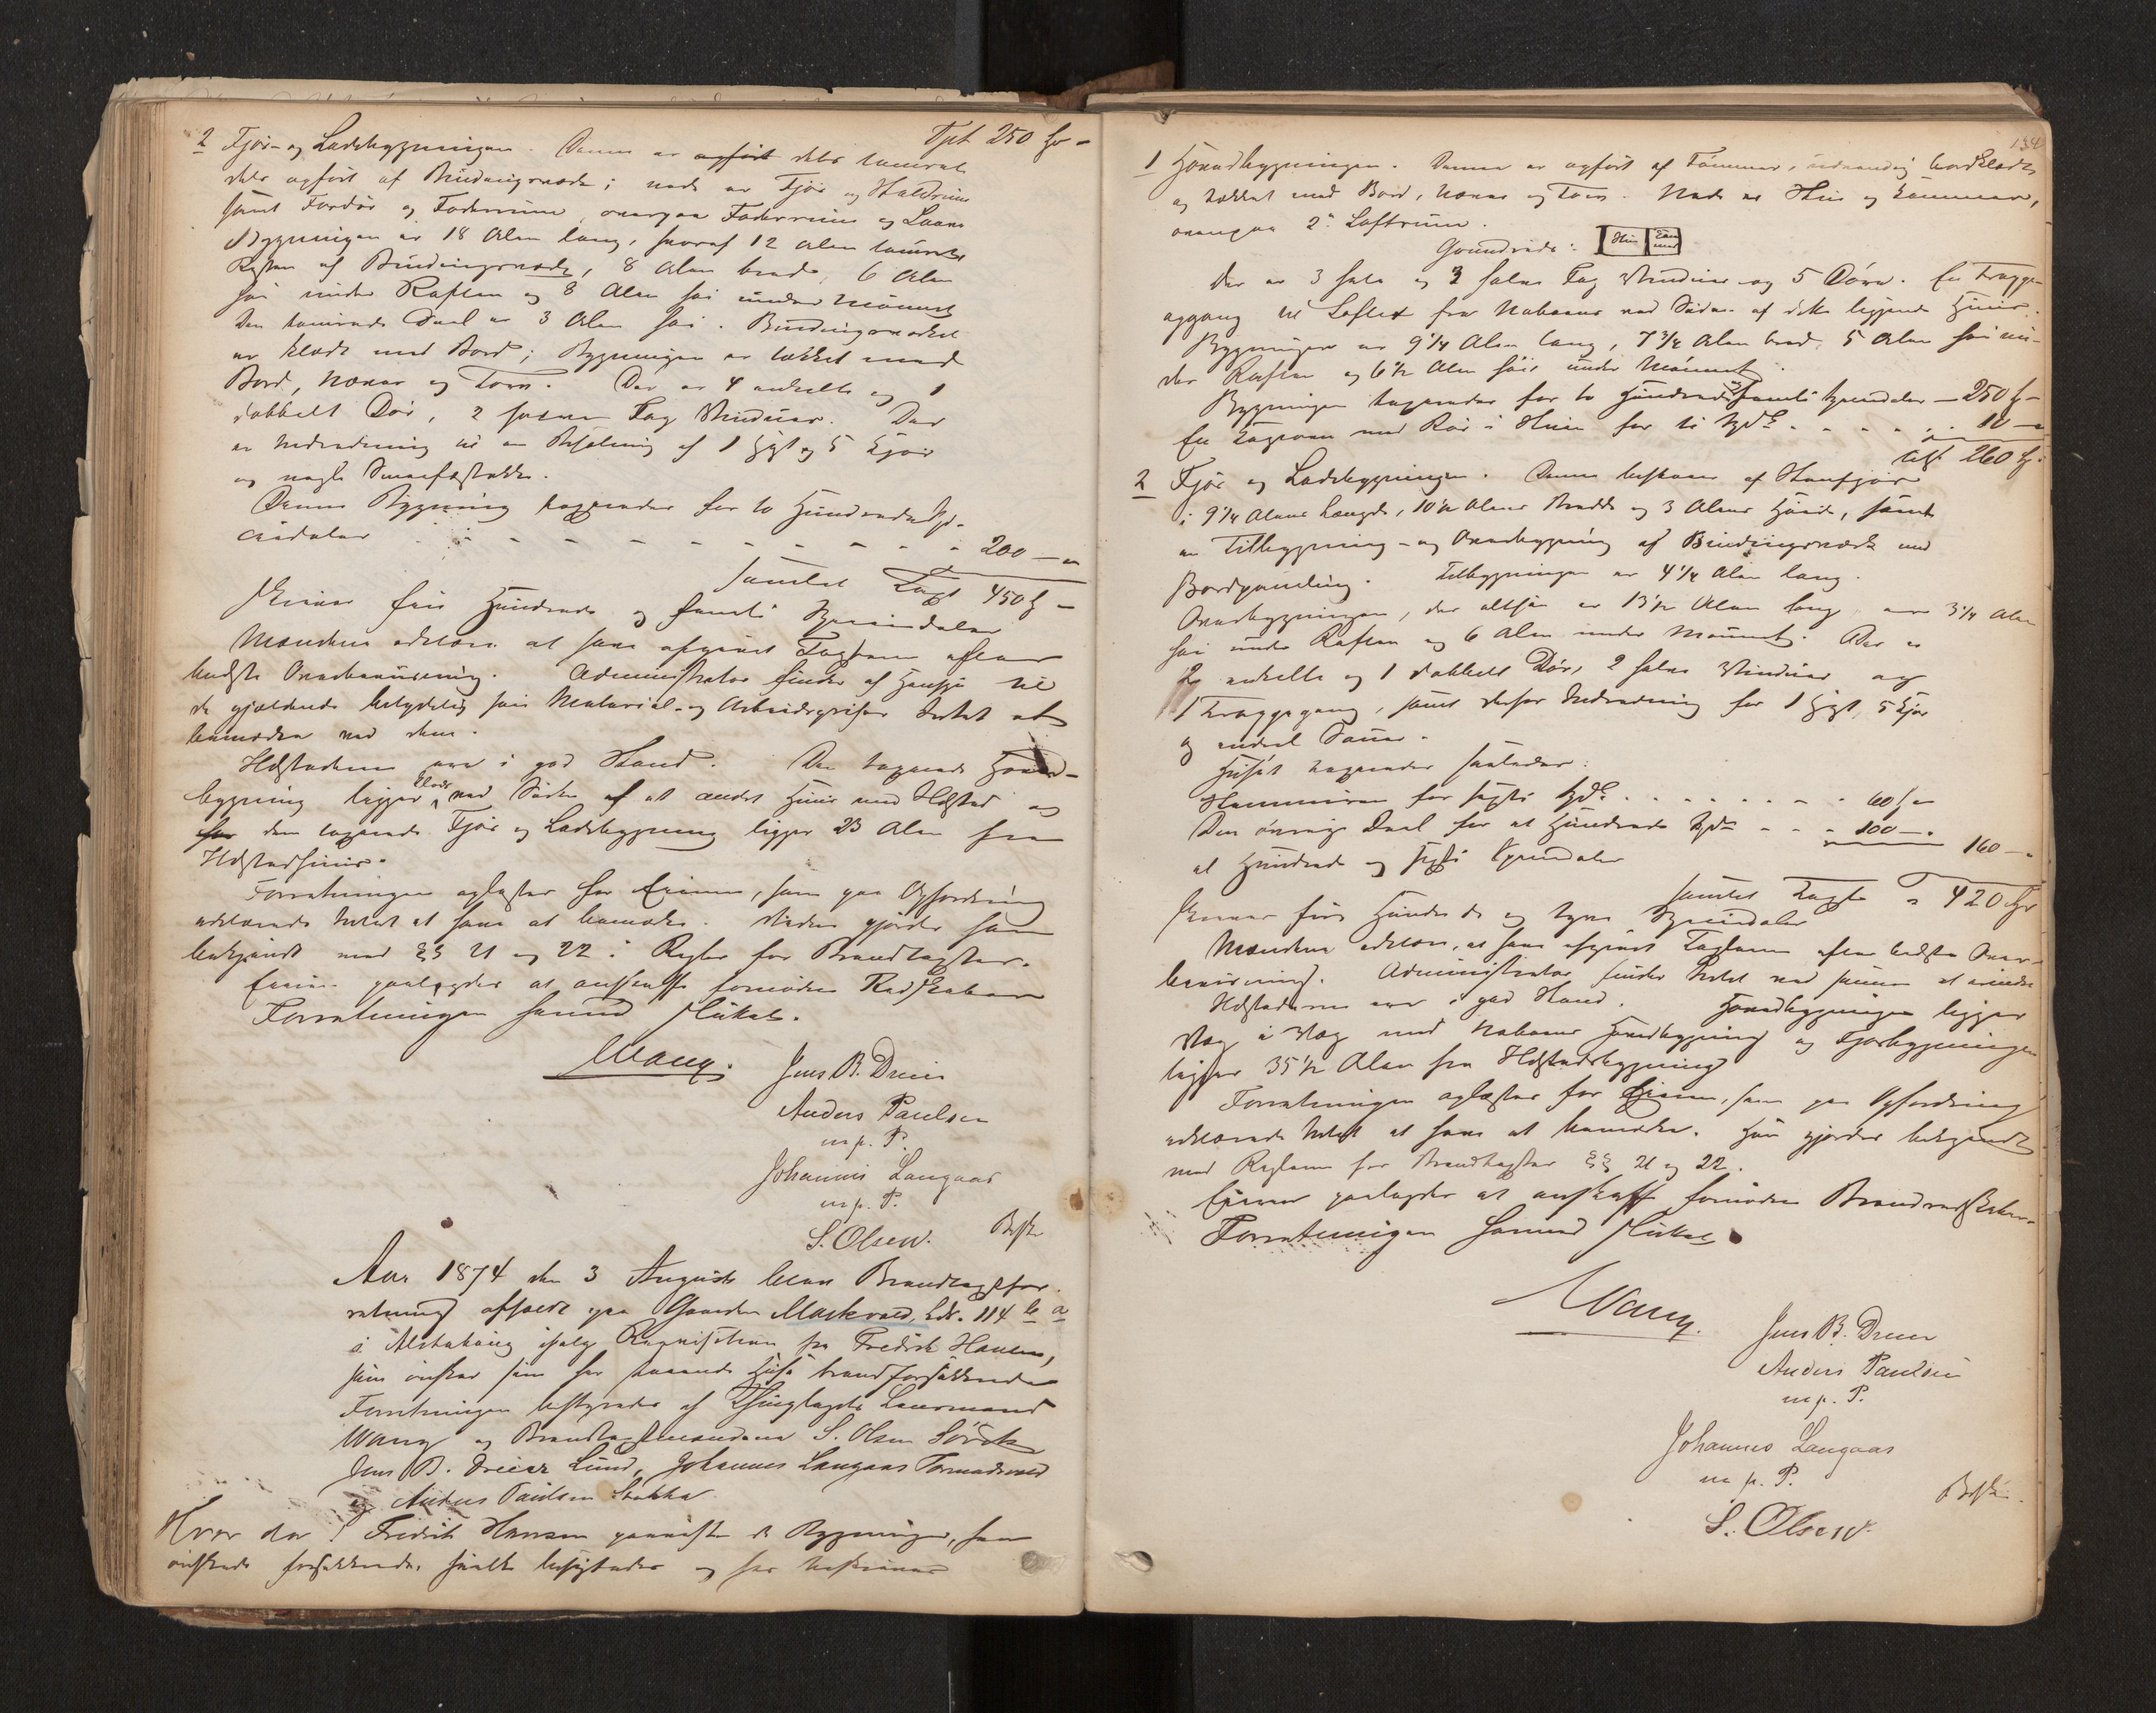 Tpt 250 Sp -
2 Fjøs- og Ladebygningen. Denne er opført dels tømret
dels opført af Bindingsværk; nede er Fjøs og Staldrum
samt Fordør og Foderrum, ovenpaa Foderrum og Laave
Bygningen er 18 Alen lang, hvoraf 12 Alen tømret
Resten af Bindingsværk, 8 Alen bred, 6 Alen
høi under Raften og 8 Alen høi under Mønnet
Den tømrede Deel er 3 Alen høi. Bindingsverket
er klædt med Bord; Bygningen er tækket med
Bord, Næver og Torv. Der er 4 enkelte og 1
dobbelt Dør, 2 Fag Vinduer. Der
er Indredning til en Besætning af 1 Hest og 5 Kjør
og nogle Smaafæstokke.
Denne Bygning taxeredes for to Hundrede Spe-
ciedaler - - - - - - - - - - 200 -
Samlet Taxt 450 Sp -
skriver fire Hundrede og femti Speciedaler
Mændene erklære at have afgivet Taxterne efter
bedste Overbeviisning. Administrator finder af Hensyn til
de gjældende betydelig høie Material- og Arbeidspriser Intet at
bemærke ved dem.
Ildstederne ere i god Stand. Den taxerede Hoved-
bygning ligger klods ved Siden af et andet Huus med Ildsted og
den taxerede Fjøs og Ladebygning ligger 23 Alen fra
Ildstedhuus.
Forretningen oplæstes for Eieren, som paa Opfordring
erklærede Intet at have at bemærke. Videre gjordes han
bekjendt med §§ 21 og 22 i Regler for Brandtaxter.
Eieren paalagdes at anskaffe fornødne Redskaber
Forretningen hermed sluttet.
Wang.
Jens B. Dreier
Anders Paulsen
m. p. P.
Johannes Langaas
m. p. P.
S. Olsen.
Aar 1874 den 3 August blev Brandtaxtfor-
retning afholdt paa Gaarden Markvold, Lbr. 114 b a
i Alstahaug ifølge Requisition fra Fredrik Hansen,
som ønsker sine her havende Huse brandforsikkrede
Forretningen bestyredes af Thinglagets Lensmand
Wang og Brandtaxtmændene S. Olsen Søvik
Jens B. Dreier Lund, Johannes Langaas
og Anders Paulsen Stokka
Hvor da: Fredrik Hansen paaviste de Bygninger, han
ønskede forsikkrede, hvilke besigtedes og her beskrives
134
1 Hovedbygningen. Denne er opført af Tømmer, udvendig bordklædt
og tækket med Bord, Næver og Torv. Nede er Stue og Kammer,
ovenpaa 2 Loftrum.
Grundrids: Stue Kam mer
Der er 3 hele og 3 halve Fag Vinduer og 5 Døre. En Trappe-
opgang til Loftet fra Naboens ved Siden af dette liggende Huus.
Bygningen er 9 1/4 Alen lang, 7 3/4 Alen bred, 5 Alen høi un-
der Raften og 6 1/2 Alen høi under Mønnet.
Bygningen taxeredes for to Hundrede og femti Speciedaler - 250 Sp -
En Kogeovn med Rør i Stuen for ti Spd - - - - - 10 -
Tilst 260 Sp
2 Fjøs og Ladebygningen. Denne bestaaer af Steenfjøs
i 9 1/4 Alens Længde, 10 1/2 Alens Bredde og 3 Alens Høide, samt
en Tilbygning- og Overbygning af Bindingsværk med
Bordpanling. Tilbygningen er 4 1/4 Alen lang.
Overbygningen, der altsaa er 13 1/2 Alen lang er 3 1/4 Alen
høi under Raften og 6 Alen under Mønnet. Der er
2 enkelte og 1 dobbelt Dør, 2 halve Vinduer og
1 Trappegang, samt derfor Indredning for 1 Hest, 5 Kjør
og endeel Sauer.
Huset taxeredes saaledes:
Steenmuren for sexti Spd - - - - - - - 60 Sp -
Den øvrige Deel for et Hundrede Spd - - - 100 -
et Hundrede og sexti Speciedaler 160 -
Samlet Taxt 420 Sp
skriver fire Hundrede og tyve Speciedaler
Mændene erklære, at have afgivet Taxterne efter bedste Over-
beviisning. Administrator finder Intet ved samme at erindre
Ildstederne ere i god Stand. Hovedbygningen ligger
Væg i Væg med Naboens Hovedbygning og Fjøsbygningen
ligger 35 1/2 Alen fra Ildstedsbygning
Forretningen oplæstes for Eieren, som paa Opfordring
erklærede Intet at have at bemærke. Han gjordes bekjendt
med Reglerne for Brandtaxter §§ 21 og 22.
Eieren paalagdes at anskaffe fornødne Brandredskaber.
Forretningen hermed sluttet
Wang.
Jens B. Dreier
Anders Paulsen
m. p. P.
Johannes Langaas
m. p. P.
S. Olsen